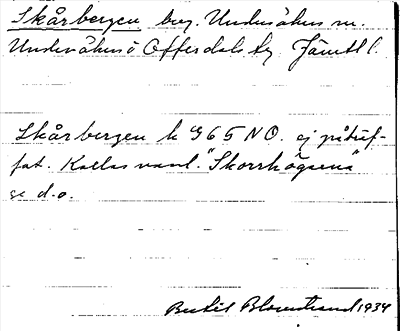 Skårbergen berg. Undersåkers sn.
Undersåkers o Offerdals tg Jämtl l.
Skårbergen k G65 NO. ej påträf-
fat. Kallas vanl. "Skorrhögarna"
se d.o.
Bertil Blomstrand 1934